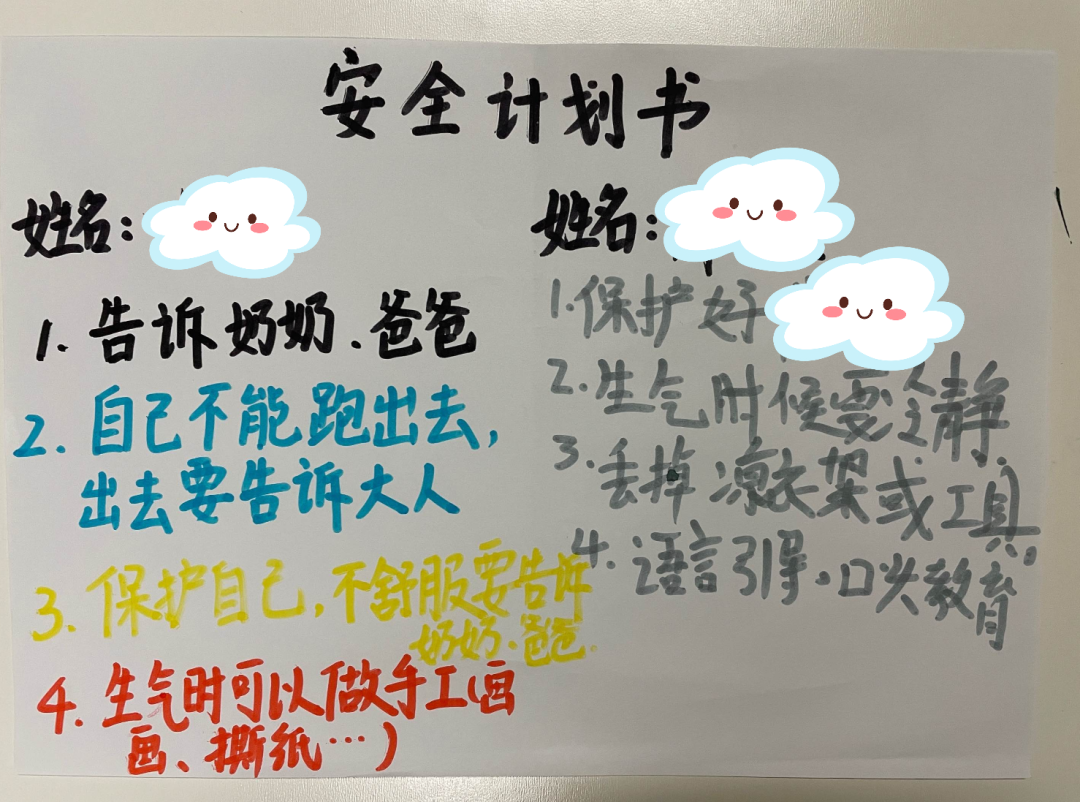 安全计划书
姓名：
1. 告诉奶奶、爸爸
2. 自己不能跑出去，
出去要告诉大人
3. 保护自己，不舒服要告诉
奶奶、爸爸.
4. 生气时可以做手工(画
画、撕纸…)
姓名：
1.保护好
2.生气时候要冷静.
3.丢掉凉衣架或工具,
4.语言引导、口头教育